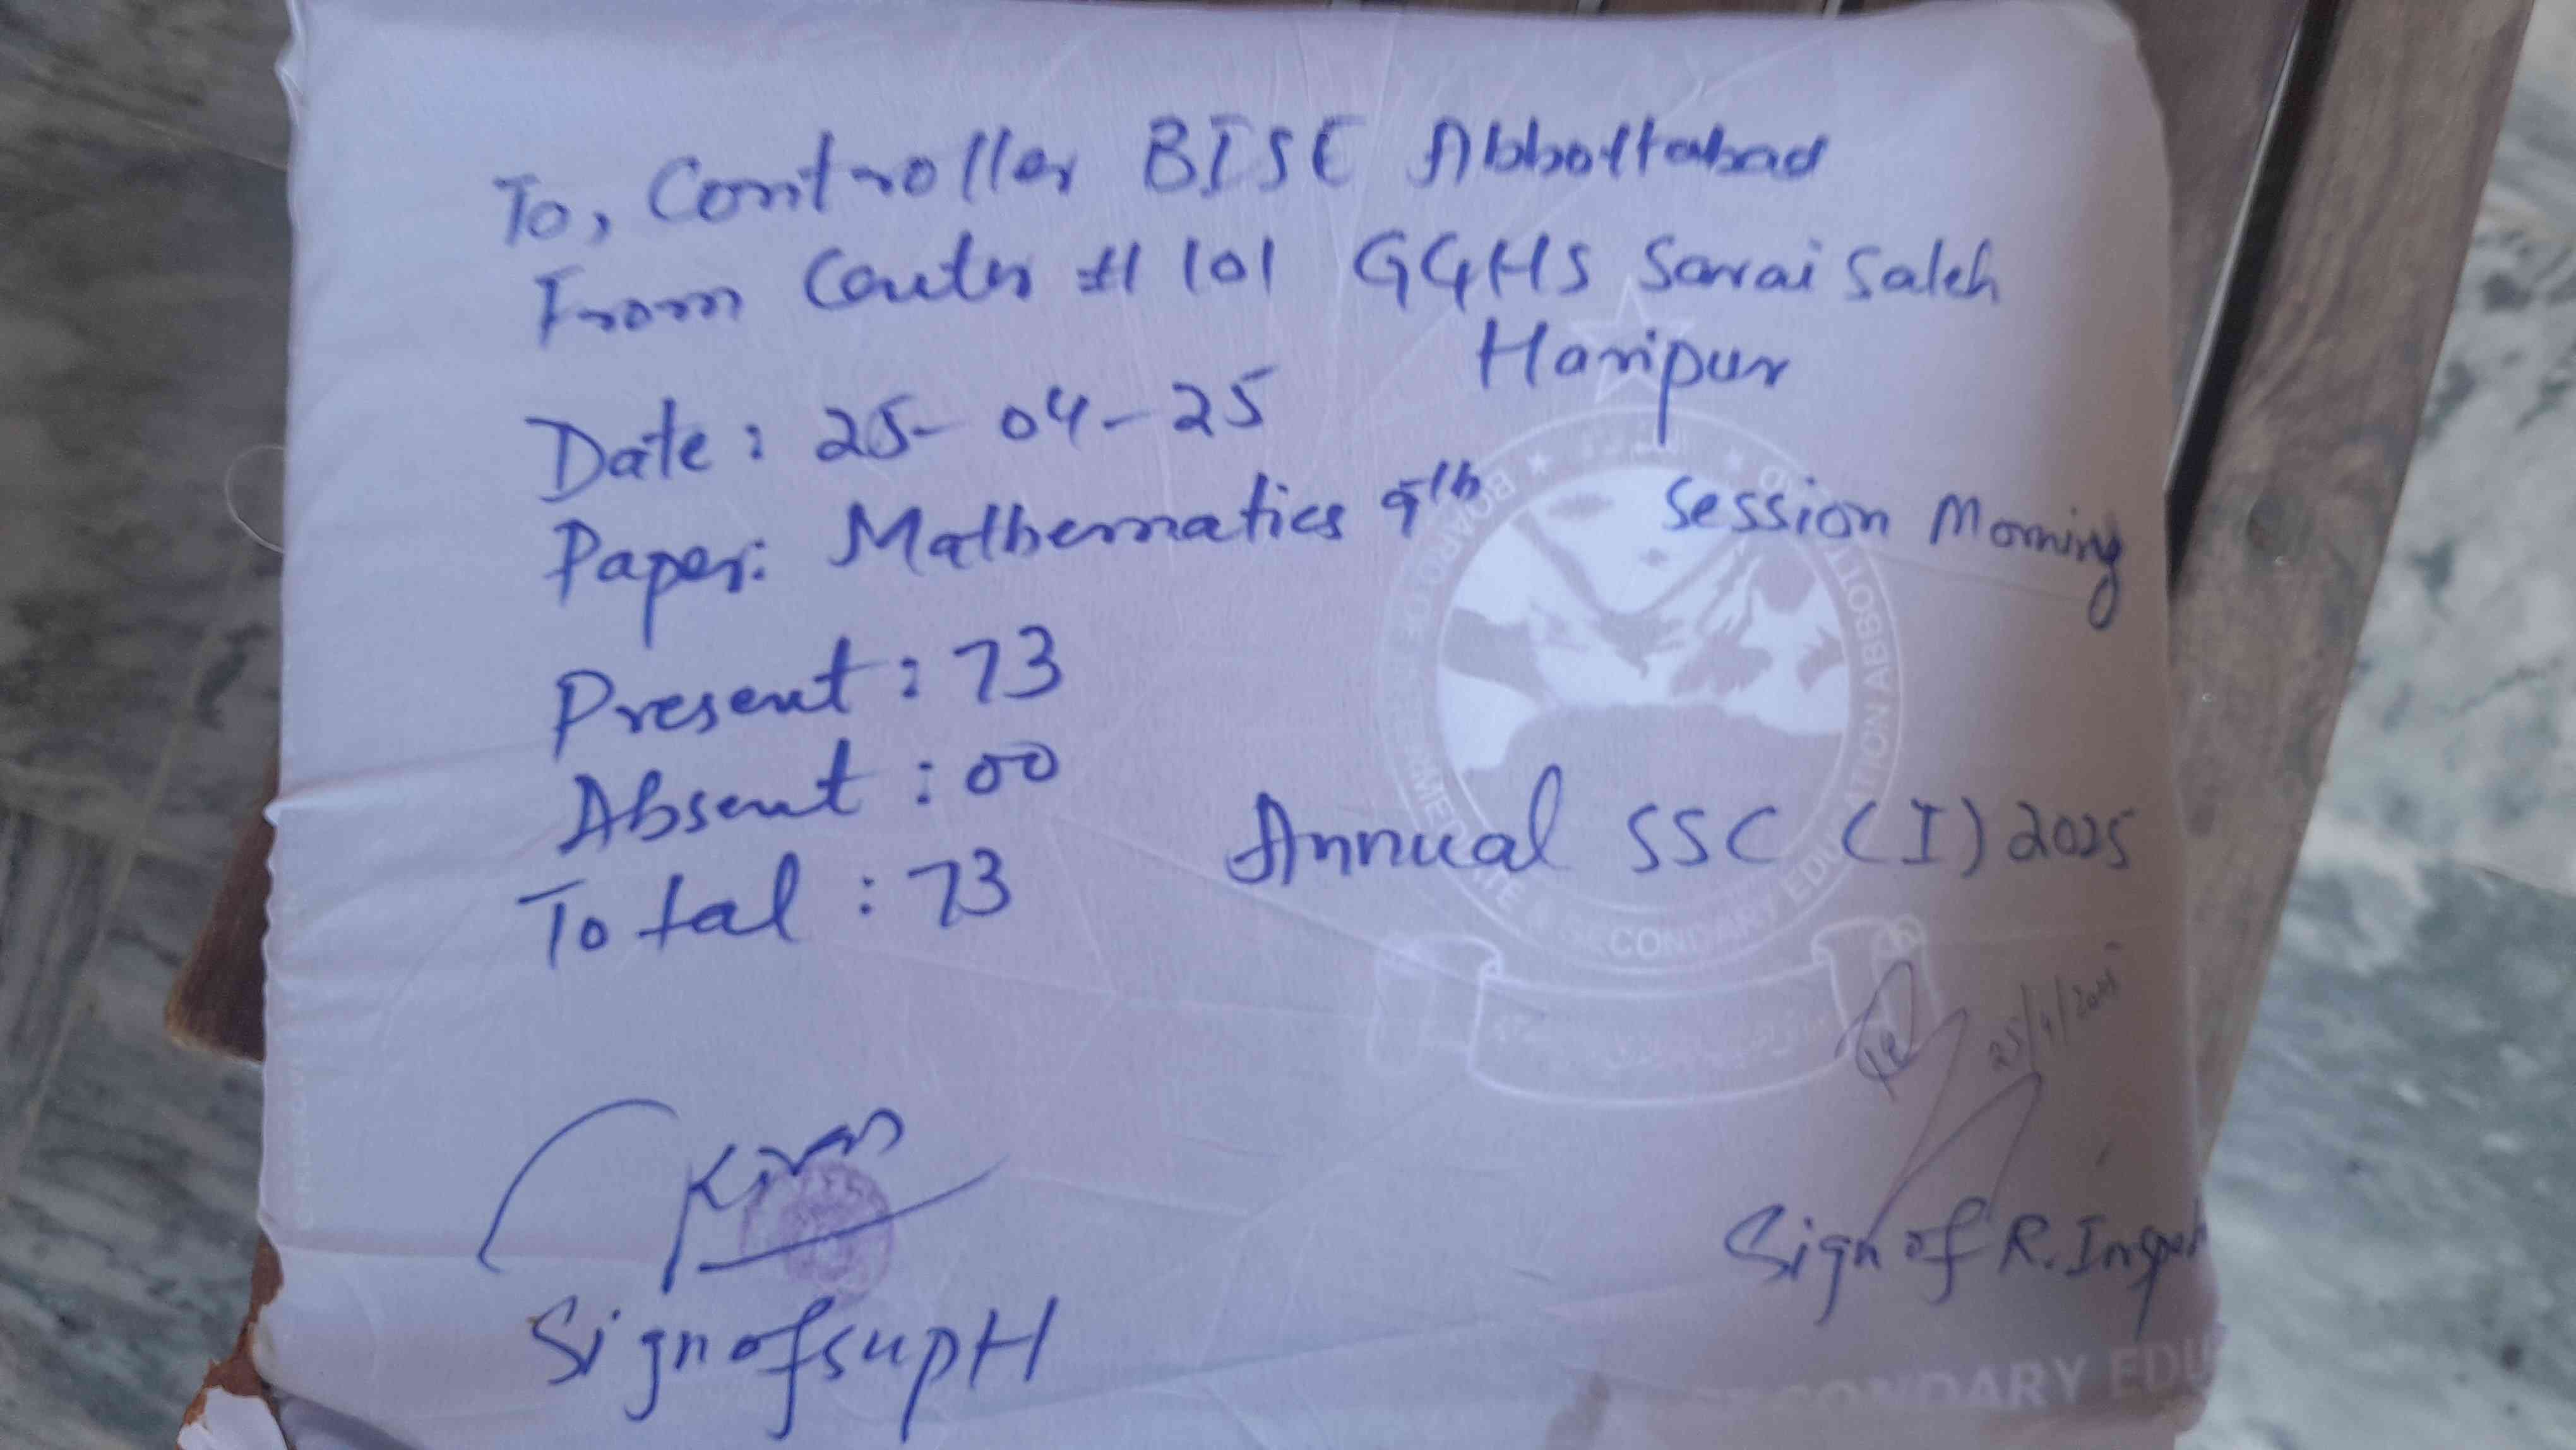 To, Controller BISE Abbottabad
From Center # 101 GGHS Sarai Saleh
Haripur
Date: 25-04-25
Paper: Mathematics 9th Session Morning
Present: 73
Absent: 00
Total: 73
Annual SSC (I) 2025
BOARD OF INTERMEDIATE & SECONDARY EDUCATION ABBOTTABAD
25/4/2025
Kiran
Sign of suptt
Sign of R. Inspect
SECONDARY EDU